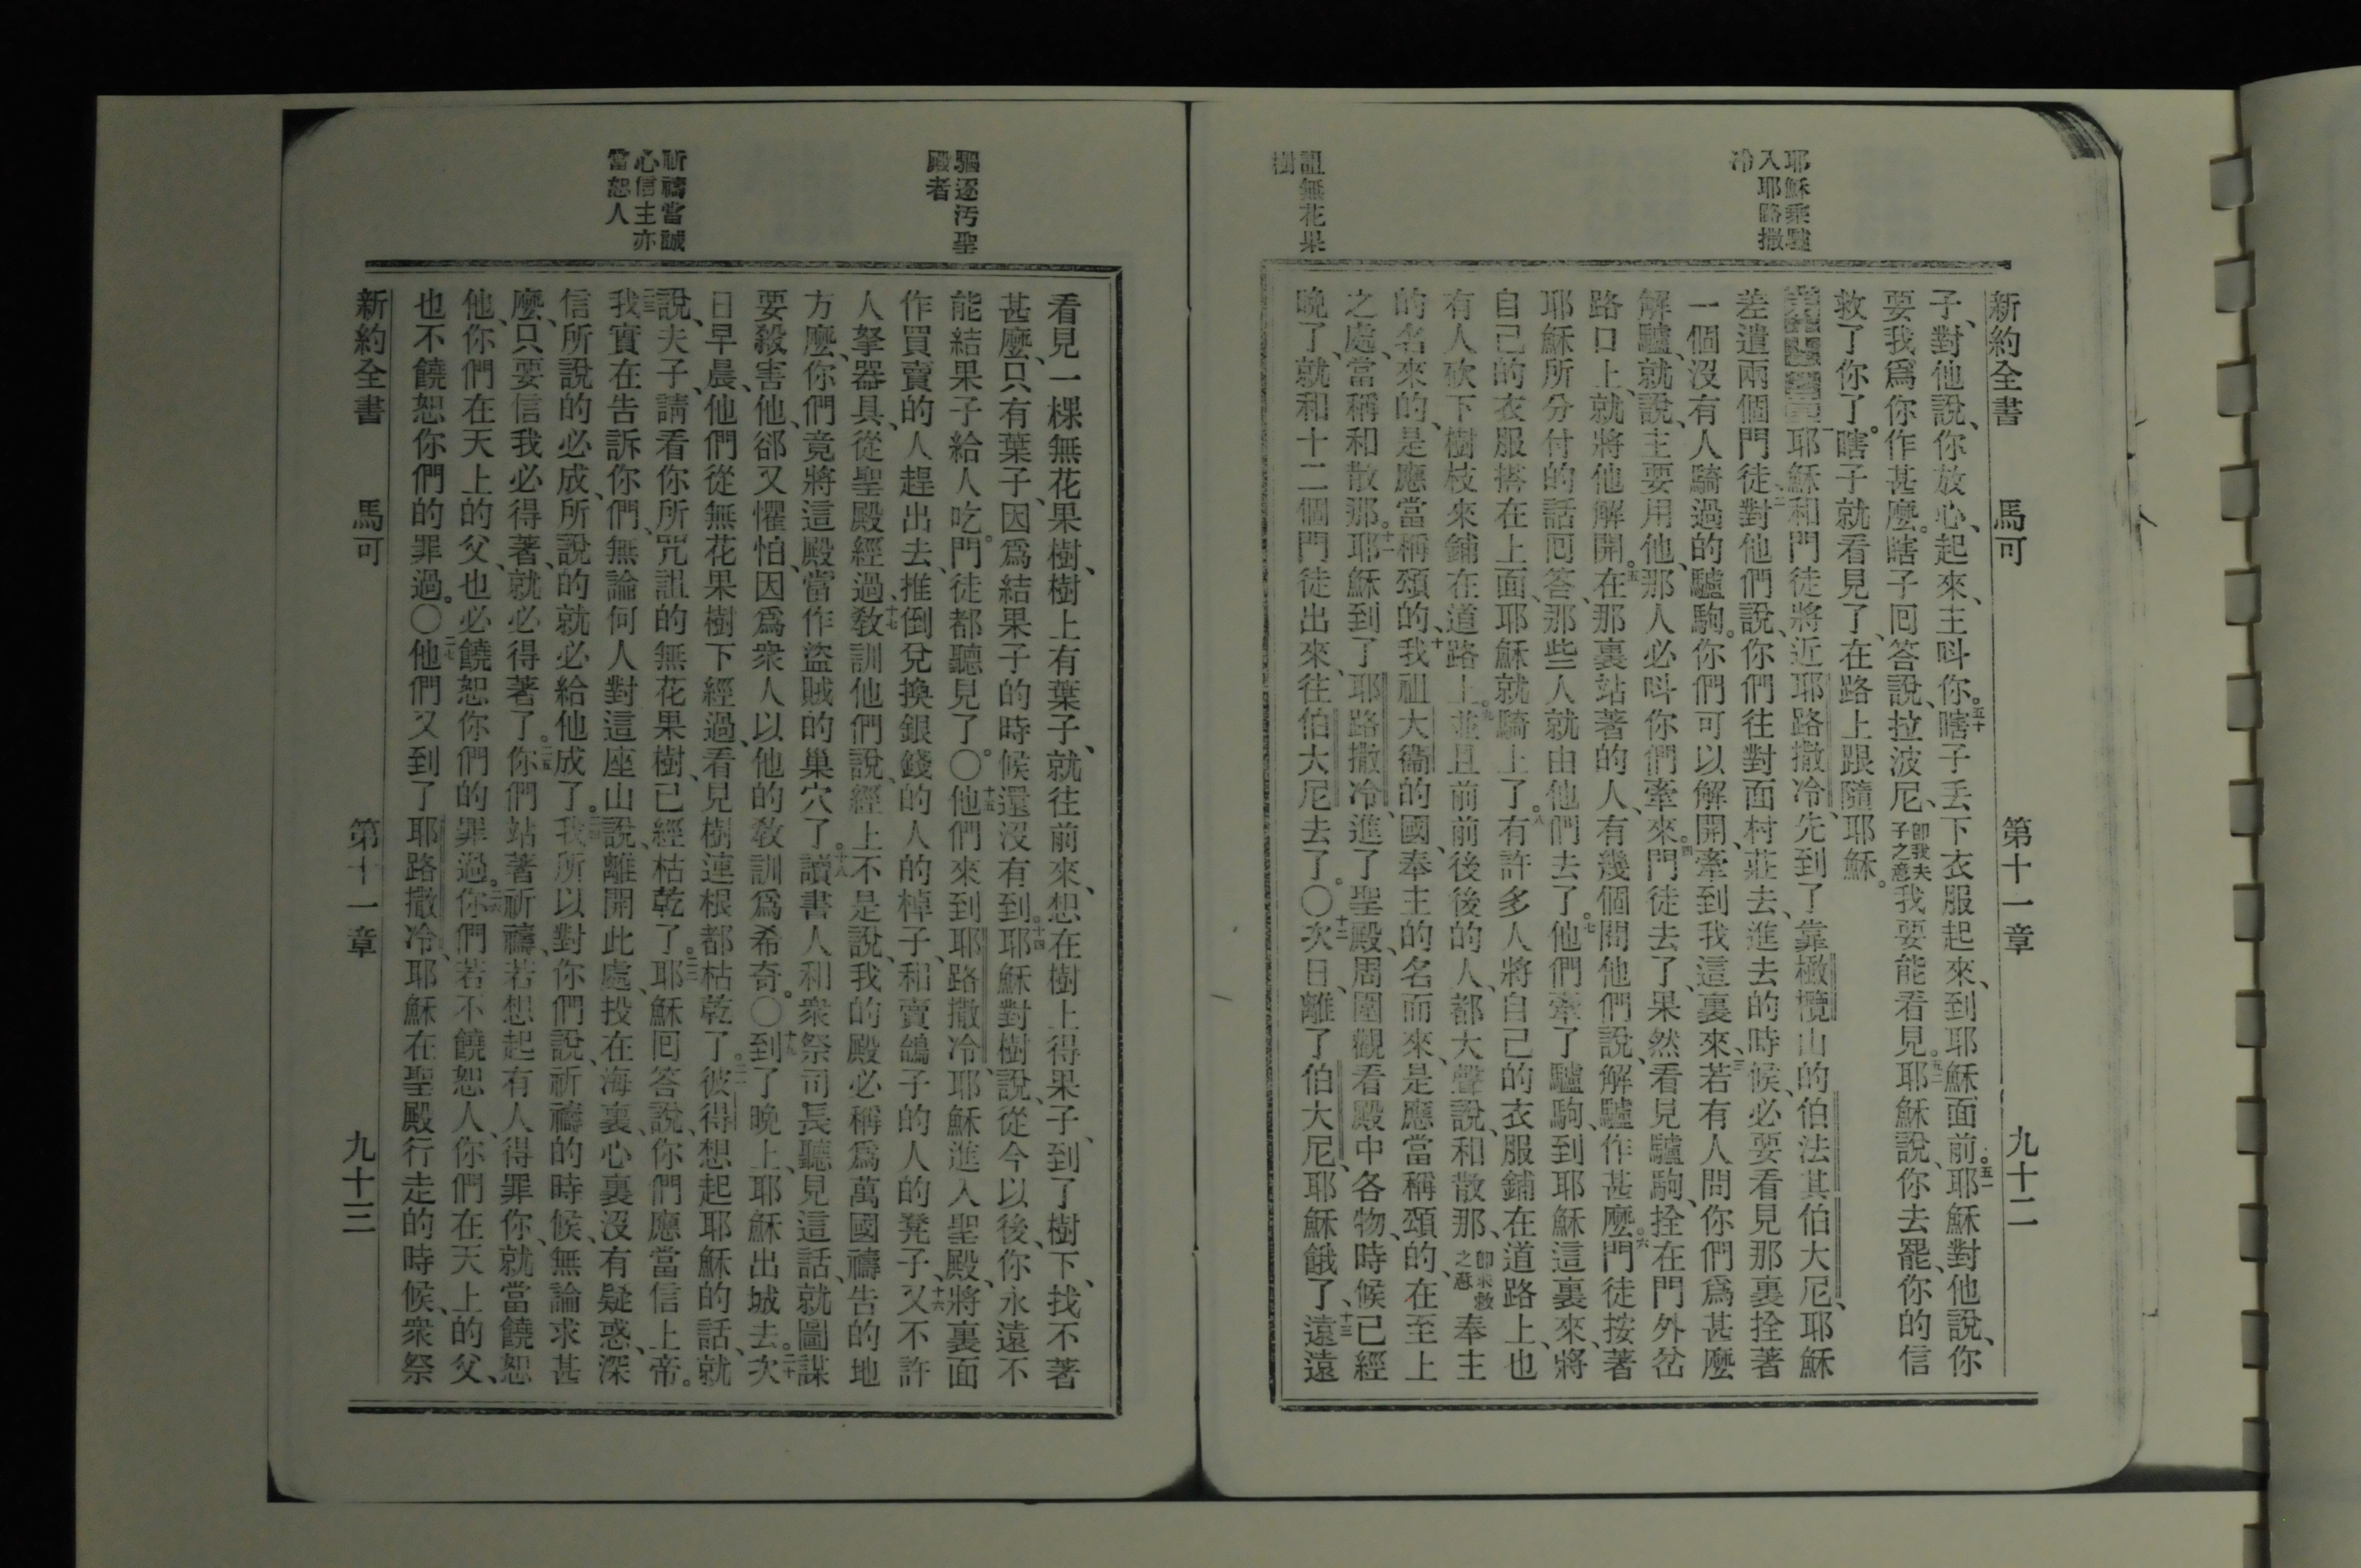 耶穌乘驢
入耶路撒
冷
詛無花果
樹
新約全書 馬可 第十一章 九十二
子、對他說、你放心、起來、主呌你。五十瞎子丟下衣服起來、到耶穌面前。五一耶穌對他說、你
要我爲你作甚麼。瞎子回答說、拉波尼、卽我夫子之意我要能看見。五二耶穌說、你去罷、你的信
救了你了。瞎子就看見了、在路上跟隨耶穌。
一耶穌和門徒將近耶路撒冷、先到了靠橄欖山的伯法其伯大尼、耶穌
差遣兩個門徒、二對他們說、你們往對面村莊去、進去的時候、必要看見那裏拴著
一個沒有人騎過的驢駒。你們可以解開、牽到我這裏來、三若有人問你們爲甚麼
解驢、就說、主要用他、那人必呌你們牽來。四門徒去了、果然看見驢駒、拴在門外岔
路口上、就將他解開。五在那裏站著的人、有幾個問他們說、解驢作甚麼。六門徒按著
耶穌所分付的話回答、那些人就由他們去了。七他們牽了驢駒、到耶穌這裏來、將
自己的衣服搭在上面、耶穌就騎上了。八有許多人將自己的衣服鋪在道路上、也
有人砍下樹枝來鋪在道路上。九並且前前後後的人、都大聲說、和散那、卽求救之意奉主
的名來的、是應當稱頌的、十我祖大衞的國、奉主的名而來、是應當稱頌的、在至上
之處、當稱和散那。十一耶穌到了耶路撒冷、進了聖殿、周圍觀看殿中各物、時候已經
晚了、就和十二個門徒出來、往伯大尼去了。〇十二次日、離了伯大尼、耶穌餓了、十三遠遠
驅逐汚聖
殿者
祈禱當誠
心信主亦
當恕人
看見一棵無花果樹、樹上有葉子、就往前來、想在樹上得果子、到了樹下、找不著
甚麼、只有葉子、因爲結果子的時候還沒有到。十四耶穌對樹說、從今以後、你永遠不
能結果子給人吃。門徒都聽見了。〇十五他們來到耶路撒冷、耶穌進入聖殿、將裏面
作買賣的人趕出去、推倒兌換銀錢的人的棹子、和賣鴿子的人的凳子、十六又不許
人拏器具、從聖殿經過、十七教訓他們說、經上不是說、我的殿必稱爲萬國禱告的地
方麼、你們竟將這殿當作盜賊的巢穴了。十八讀書人和衆祭司長聽見這話、就圖謀
要殺害他、郤又懼怕、因爲衆人以他的教訓爲希奇。〇十九到了晚上、耶穌出城去。二十次
日早晨、他們從無花果樹下經過、看見樹連根都枯乾了。二一彼得想起耶穌的話、就
說、夫子、請看你所咒詛的無花果樹、已經枯乾了。二二耶穌回答說、你們應當信上帝。
二三我實在告訴你們、無論何人對這座山說、離開此處、投在海裏、心裏沒有疑惑、深
信所說的必成、所說的就必給他成了。二四我所以對你們說、祈禱的時候、無論求甚
麼、只要信我必得著、就必得著了。二五你們站著祈禱、若想起有人得罪你、就當饒恕
他、你們在天上的父、也必饒恕你們的罪過。二六你們若不饒恕人、你們在天上的父、
也不饒恕你們的罪過。〇二七他們又到了耶路撒冷、耶穌在聖殿行走的時候、衆祭
新約全書 馬可 第十一章 九十三